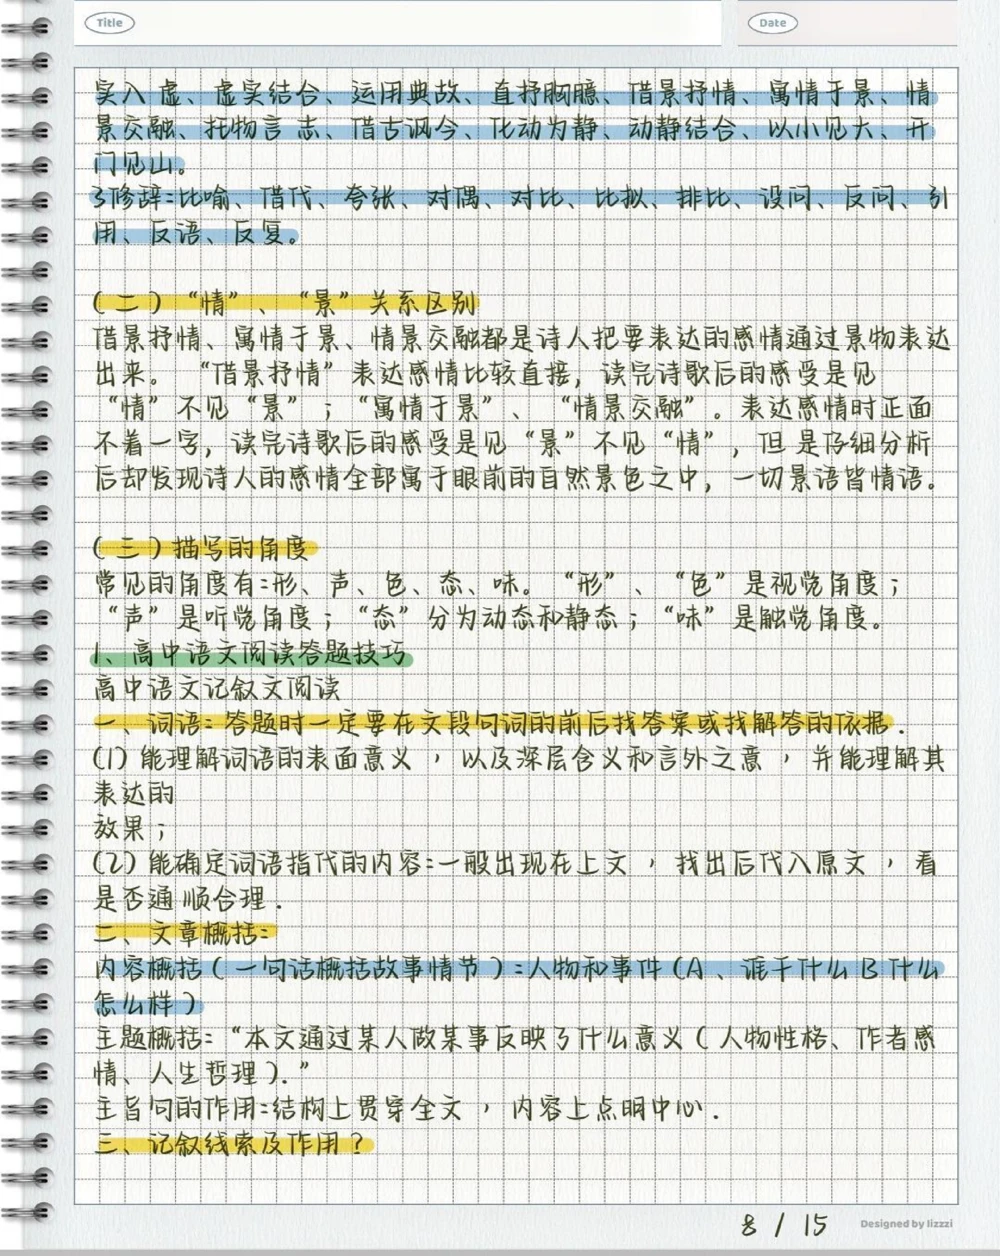 Title
Date
实入虚、虚实结合、运用典故、直抒胸臆、借景抒情、寓情于景、情
景交融、托物言志、借古讽今、化动为静、动静结合、以小见大、开
门见山。
3修辞:比喻、借代、夸张、对偶、对比、比拟、排比、设问、反问、引
用、反语、反复。
(二)“情”、“景”关系区别
借景抒情、寓情于景、情景交融都是诗人把要表达的感情通过景物表达
出来。“借景抒情”表达感情比较直接，读完诗歌后的感受是见
“情”不见“景”；“寓情于景”、“情景交融”。表达感情时正面
不着一字，读完诗歌后的感受是见“景”不见“情”，但是仔细分析
后却发现诗人的感情全部寓于眼前的自然景色之中，一切景语皆情语。
(三)描写的角度
常见的角度有:形、声、色、态、味。“形”、“色”是视觉角度；
“声”是听觉角度；“态”分为动态和静态；“味”是触觉角度。
1、高中语文阅读答题技巧
高中语文记叙文阅读
一、词语:答题时一定要在文段句词的前后找答案或找解答的依据.
(1)能理解词语的表面意义，以及深层含义和言外之意，并能理解其
表达的
效果；
(2)能确定词语指代的内容:一般出现在上文，找出后代入原文，看
是否通顺合理.
二、文章概括:
内容概括(一句话概括故事情节):人物和事件(A、谁干什么B什么
怎么样)
主题概括:“本文通过某人做某事反映了什么意义(人物性格、作者感
情、人生哲理).”
主旨句的作用:结构上贯穿全文，内容上点明中心.
三、记叙线索及作用？
8 / 15
Designed by lizzzi